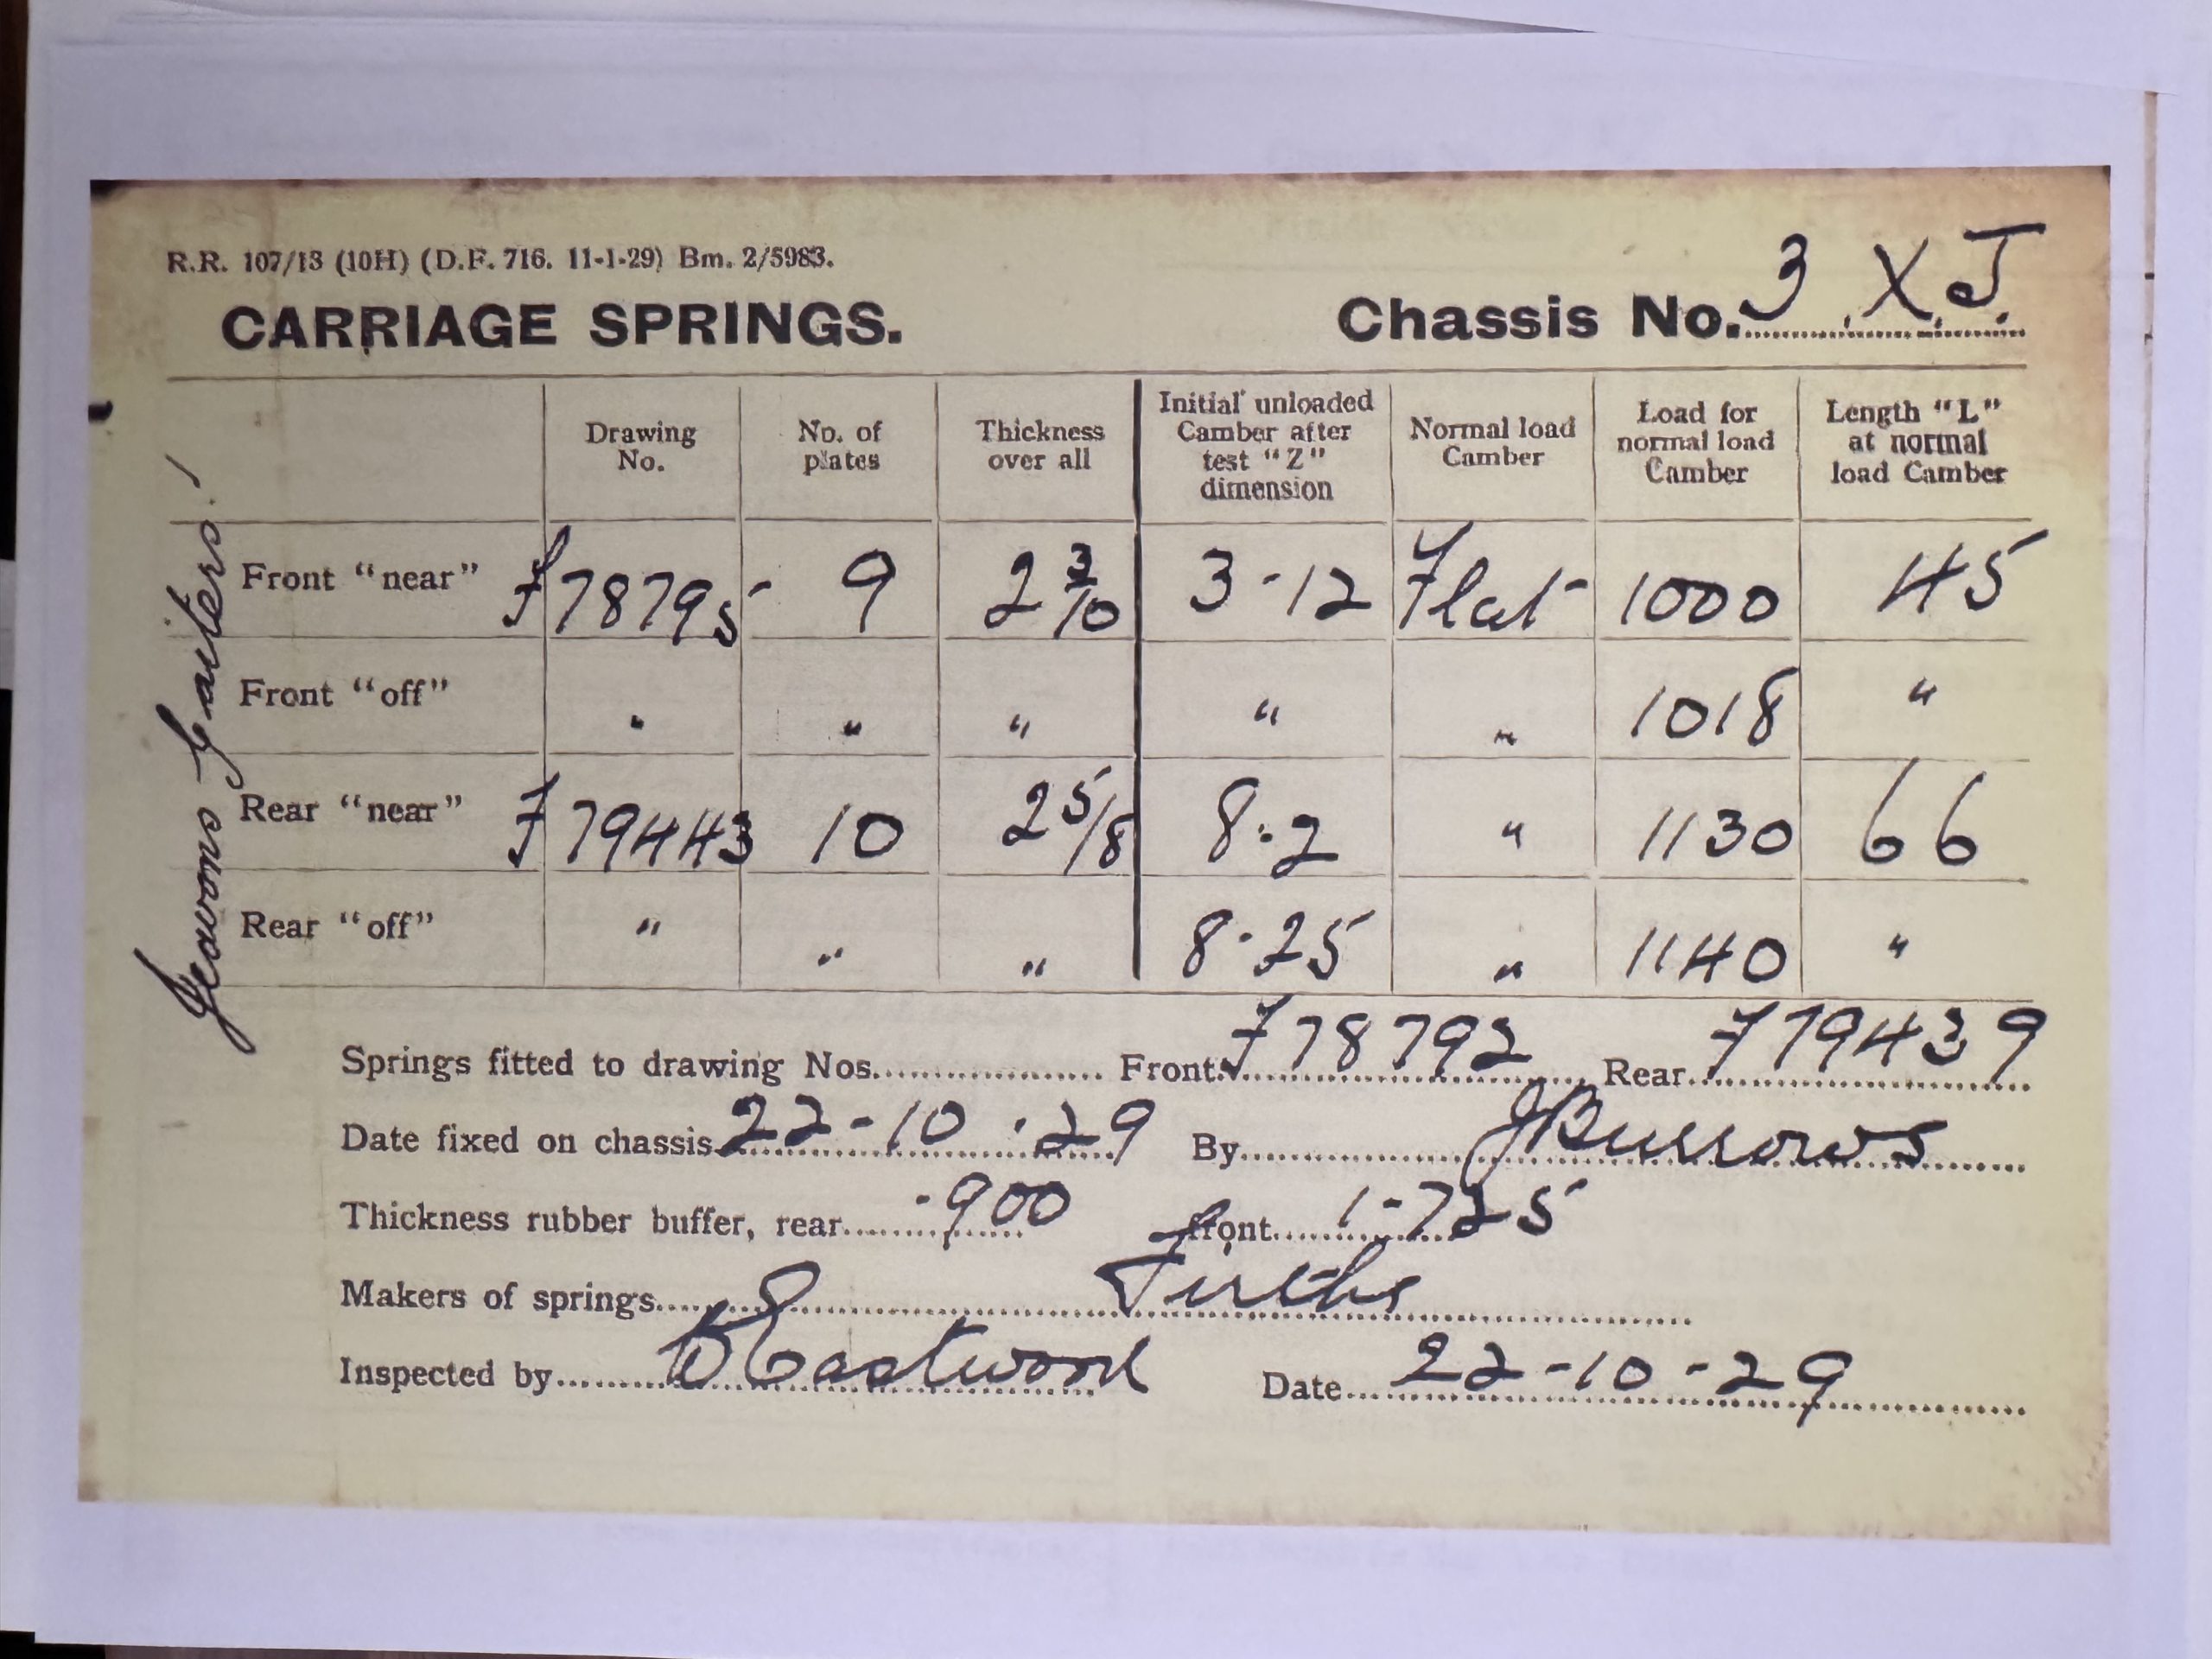 R.R. 107/13 (10H) (D.F. 716. 11-1-29) Bm. 2/5983.
CARRIAGE SPRINGS. Chassis No. 3 X.J.
Drawing No. No. of plates Thickness over all Initial unloaded Camber after test "Z" dimension Normal load Camber Load for normal load Camber Length "L" at normal load Camber
Front "near" F78795 9 2 3/10 3-12 Flat 1000 45
Front "off" " " " " " 1018 "
Rear "near" F79443 10 2 5/8 8.2 " 1130 66
Rear "off" " " " 8.25 " 1140 "
Jeavons Gaiters!
Springs fitted to drawing Nos. Front F78792 Rear F79439
Date fixed on chassis 22-10-29 By J Burrows
Thickness rubber buffer, rear .900 front 1-725
Makers of springs Firths
Inspected by Eastwood Date 22-10-29